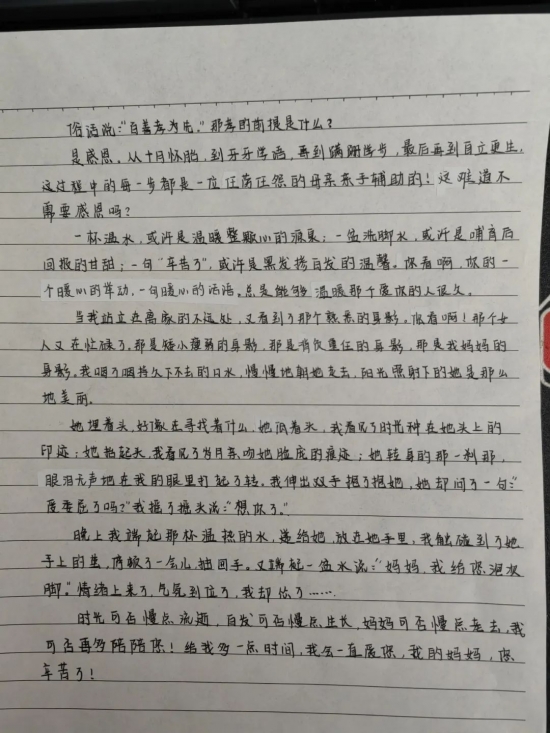 俗话说:"百善孝为先。"那孝的前提是什么?
是感恩。从十月怀胎,到牙牙学语,再到蹒跚学步,最后再到自立更生,
这过程中的每一步都是一位任劳任怨的母亲亲手辅助的!这难道不
需要感恩吗?
一杯温水,或许是温暖整颗心的源泉;一盆洗脚水,或许是哺育后
回报的甘甜;一句"辛苦了",或许是黑发掺白发的温馨。你看啊,你的一
个暖心的举动,一句暖心的话语。总是能够温暖那个爱你的人很久。
当我站立在离家的不远处,又看到了那个熟悉的身影。你看啊!那个女
人又在忙碌了。那是矮小瘦弱的身影,那是背负重任的身影,那是我妈妈的
身影。我咽了咽持久下不去的口水,慢慢地朝她走去,阳光照射下的她是那么
地美丽。
她埋着头,好像在寻找着什么,她低着头,我看见了时光种在她头上的
印迹;她抬起头,我看见了岁月亲吻她脸庞的痕迹;她转身的那一刹那,
眼泪无声地在我的眼里打起了转。我伸出双手抱了抱她,她却问了一句:"
受委屈了吗?"我摇了摇头说:"想你了。"
晚上我端起那杯温热的水,递给她,放在她手里,我触碰到了她
手上的茧,停顿了一会儿,抽回手。又端起一盆水说:"妈妈,我给您泡次
脚。"情绪上来了,气氛到位了,我却怂了……
时光可否慢点流逝,白发可否慢点生长,妈妈可否慢点老去,我
可否再多陪陪您!给我多一点时间,我会一直爱您,我的妈妈,您
辛苦了!